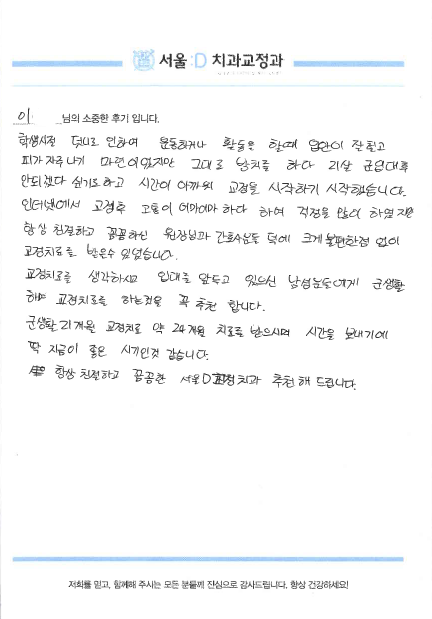 서울:D 치과교정과
이 님의 소중한 후기 입니다.
학생시절 덧니로 인하여 운동하거나 활동을 할때 입안이 잘 찢고
피가 자주나기 마련이었지만 그대로 방치를 하다 21살 군입대후
안되겠다 싶기도하고 시간이 아까워 교정을 시작하기 시작했습니다.
인터넷에서 교정후 고통이 어마어마 하다 하여 걱정을 많이 하였지만
항상 친절하고 꼼꼼하신 원장님과 간호사분들 덕에 크게 불편한점 없이
교정치료를 받을수 있었습니다.
교정치료를 생각하시고 입대를 앞두고 있으신 남성분들에게 군생활
하며 교정치료를 하는것을 꼭 추천 합니다.
군생활 21개월 교정치료 약 24개월 치료를 받으시며 시간을 보내기에
딱 지금이 좋은 시기인것 같습니다.
항상 친절하고 꼼꼼한 서울D교정치과 추천해 드립니다.
저희를 믿고, 함께해 주시는 모든 분들께 진심으로 감사드립니다. 항상 건강하세요!